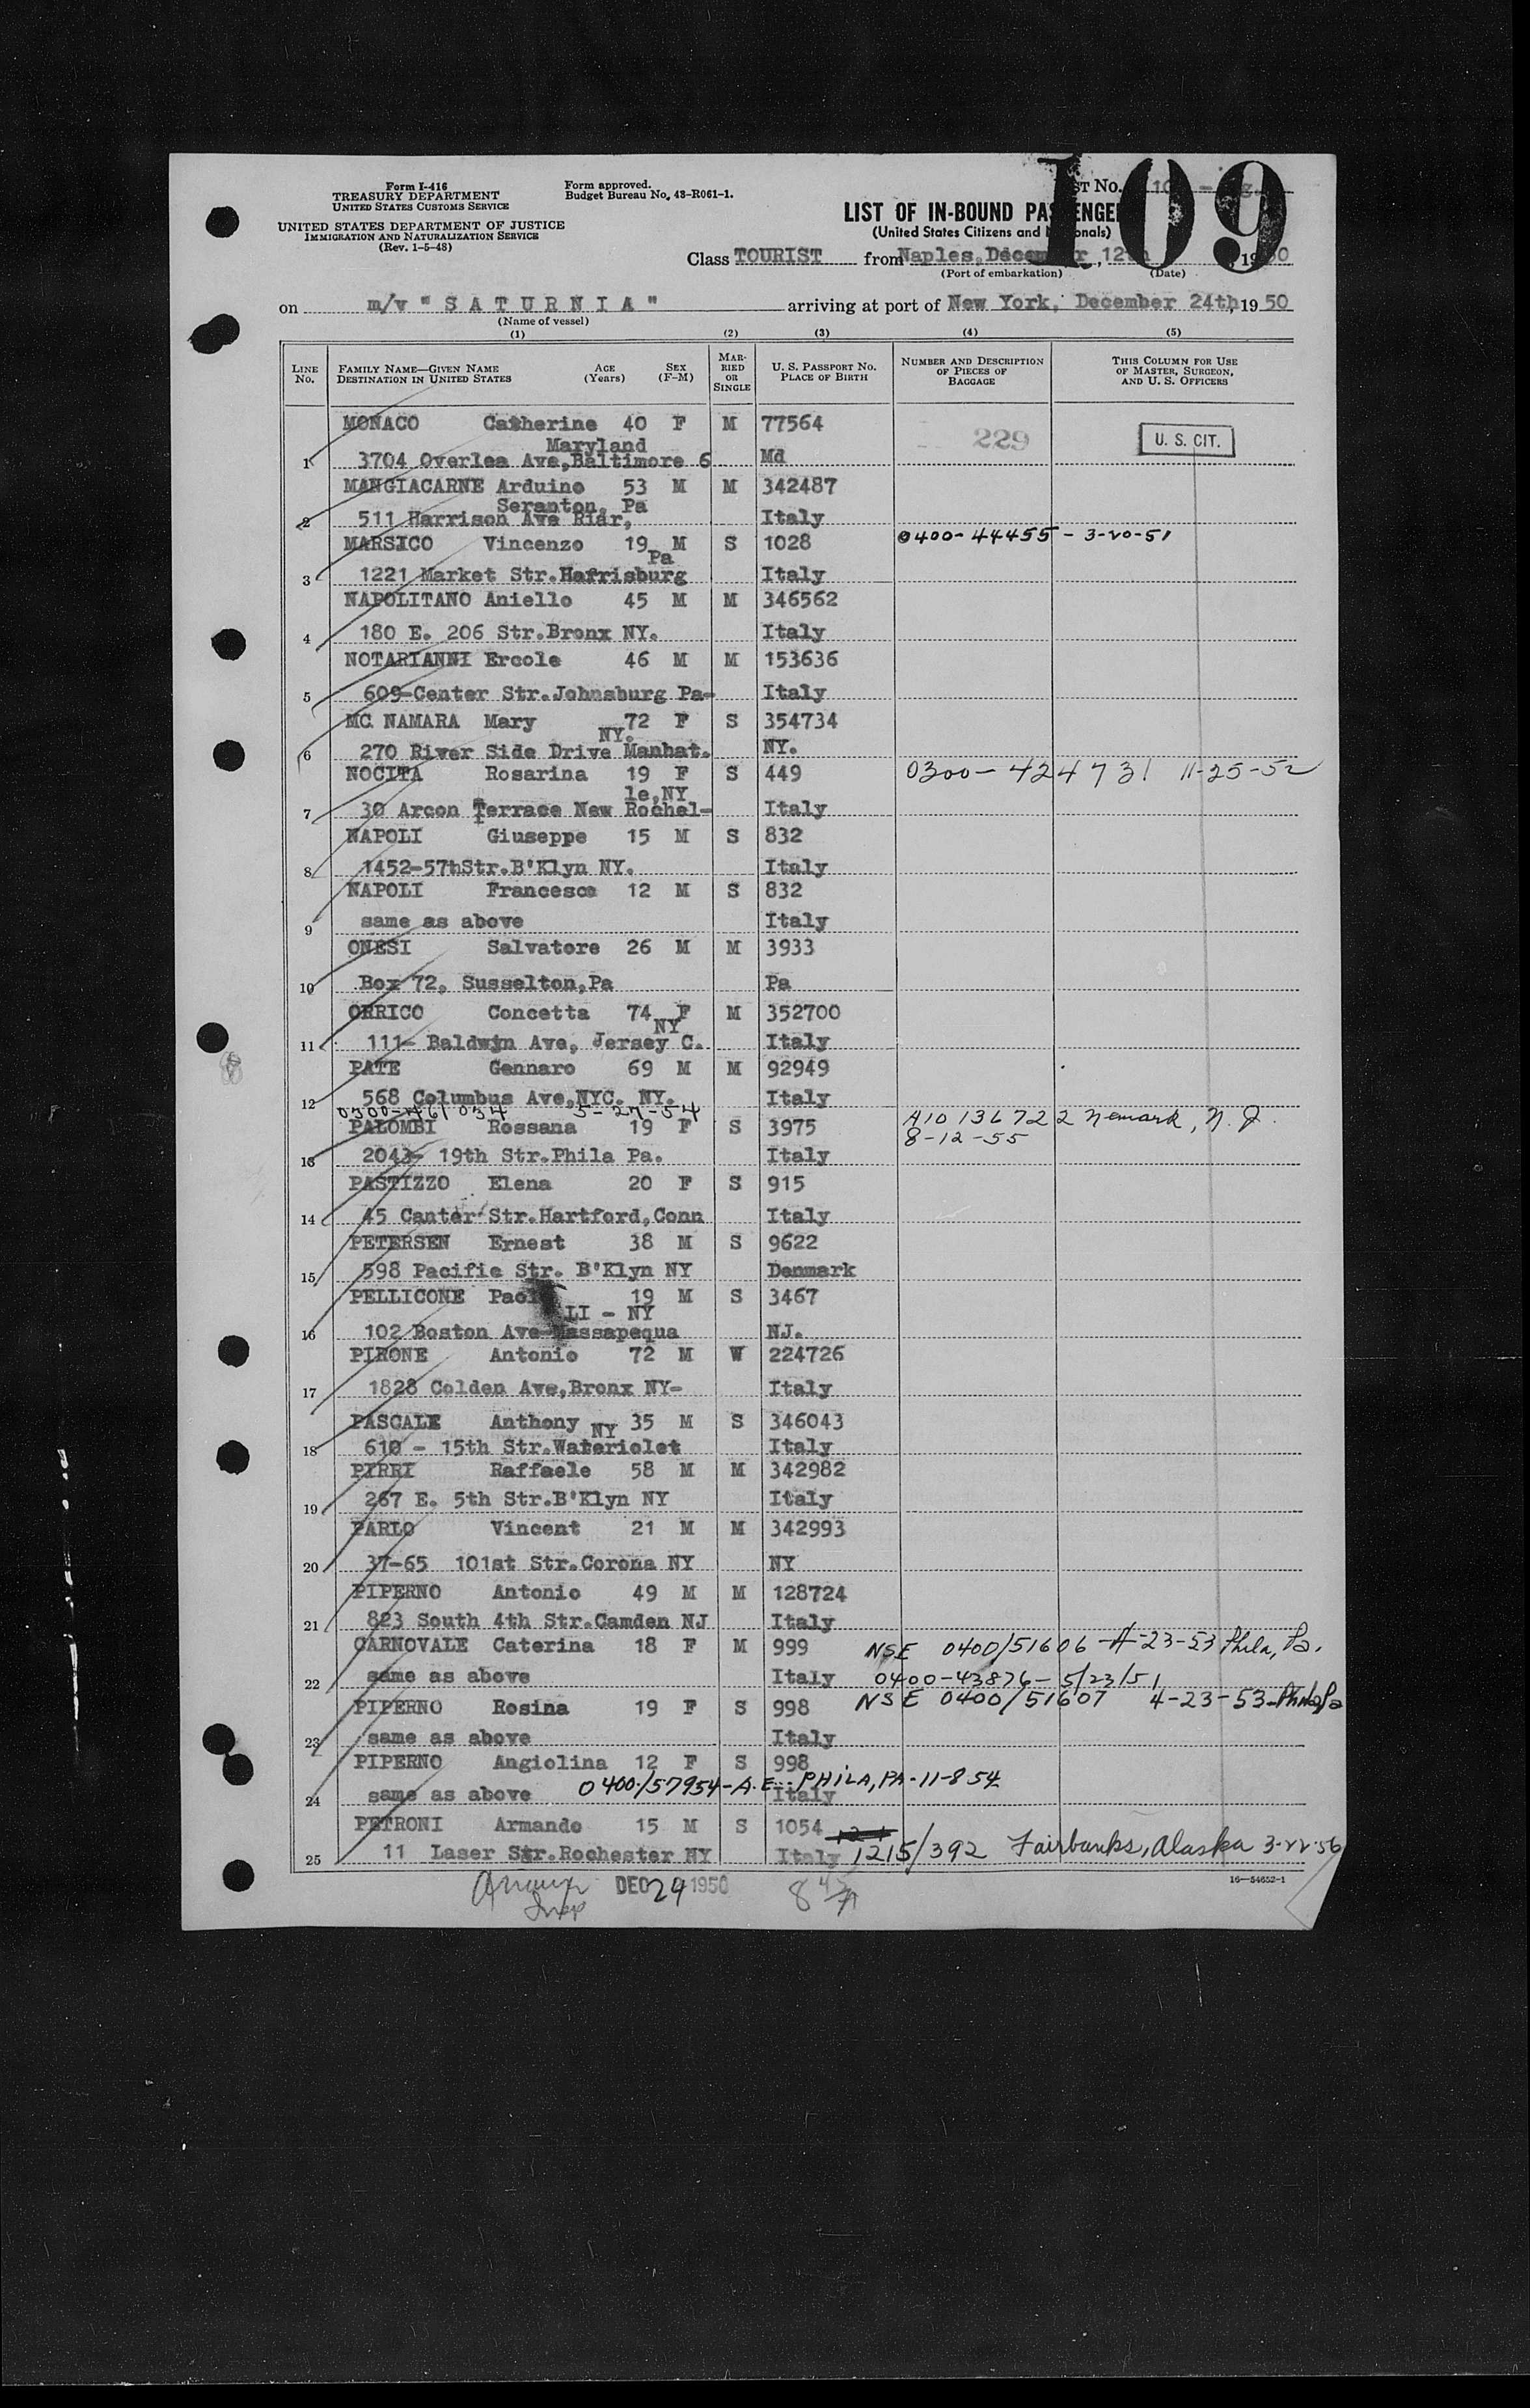 Form I-416
TREASURY DEPARTMENT
UNITED STATES CUSTOMS SERVICE
UNITED STATES DEPARTMENT OF JUSTICE
IMMIGRATION AND NATURALIZATION SERVICE
(Rev. 1-5-48)
Form approved.
Budget Bureau No. 43-R061-1.
109
LIST OF IN-BOUND PASSENGERS
(United States Citizens and Nationals)
Class TOURIST from Naples, December, 12th 1950
(Port of embarkation) (Date)
on m/v "SATURNIA" arriving at port of New York, December 24th, 1950
(Name of vessel)
(1) (2) (3) (4) (5)
LINE No. FAMILY NAME—GIVEN NAME AGE (Years) SEX (F-M) DESTINATION IN UNITED STATES MARRIED OR SINGLE U. S. PASSPORT NO. PLACE OF BIRTH NUMBER AND DESCRIPTION OF PIECES OF BAGGAGE THIS COLUMN FOR USE OF MASTER, SURGEON, AND U. S. OFFICERS
MONACO Catherine 40 F M 77564 229 U. S. CIT.
Maryland
1 3704 Overlea Ave,Baltimore 6 Md
MANGIACARNE Arduino 53 M M 342487
Seranton, Pa
2 511 Harrison Ave Riar, Italy
MARSICO Vincenzo 19 M S 1028 0400-44455 - 3-20-51
Pa
3 1221 Market Str.Harrisburg Italy
NAPOLITANO Aniello 45 M M 346562
4 180 E. 206 Str.Bronx NY. Italy
NOTARIANNI Ercole 46 M M 153636
5 609-Center Str.Johnsburg Pa- Italy
MC NAMARA Mary 72 F S 354734
NY.
6 270 River Side Drive Manhat. NY.
NOCITA Rosarina 19 F S 449 0300-424731 11-25-52
le,NY
7 30 Arcon Terrace New Rochel- Italy
NAPOLI Giuseppe 15 M S 832
8 1452-57thStr.B'Klyn NY. Italy
NAPOLI Francesco 12 M S 832
9 same as above Italy
ONESI Salvatore 26 M M 3933
10 Box 72, Susselton,Pa Pa
ORRICO Concetta 74 F M 352700
NY
11 111- Baldwin Ave, Jersey C. Italy
PATE Gennaro 69 M M 92949
12 568 Columbus Ave,NYC. NY. Italy
0300-461034 5-27-54
PALOMBI Rossana 19 F S 3975 A10 136 722 Newark, N.J.
8-12-55
13 2043- 19th Str.Phila Pa. Italy
PASTIZZO Elena 20 F S 915
14 45 Canter Str.Hartford,Conn Italy
PETERSEN Ernest 38 M S 9622
15 598 Pacific Str. B'Klyn NY Denmark
PELLICONE 19 M S 3467
LI - NY
16 102 Boston Ave-Massapequa NJ.
PIRONE Antonio 72 M W 224726
17 1828 Colden Ave,Bronx NY- Italy
PASCALE Anthony 35 M S 346043
NY
18 610 - 15th Str.Wateriolet Italy
PIRRI Raffaele 58 M M 342982
19 267 E. 5th Str.B'Klyn NY Italy
PARLO Vincent 21 M M 342993
20 37-65 101st Str.Corona NY NY
PIPERNO Antonio 49 M M 128724
21 823 South 4th Str.Camden NJ Italy
CARNOVALE Caterina 18 F M 999 NSE 0400/51606-4-23-53 Phila, Pa.
22 same as above Italy 0400-43876- 5/23/51
PIPERNO Rosina 19 F S 998 NSE 0400/51607 4-23-53-Phila Pa
23 same as above Italy
PIPERNO Angiolina 12 F S 998
0400/57954-A.E. PHILA, PA-11-8 54
24 same as above Italy
PETRONI Armando 15 M S 1054
25 11 Laser Str.Rochester NY Italy 1215/392 Fairbanks, Alaska 3-22-56
DEC 24 1950
16—54652-1